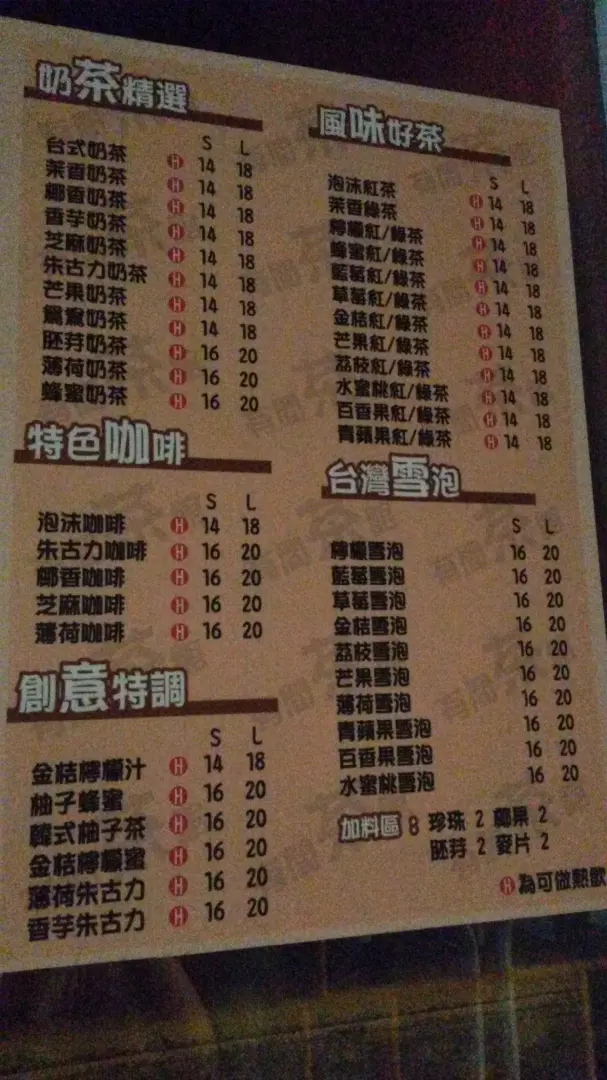 奶茶精選
S L
台式奶茶 H 14 18
茉香奶茶 H 14 18
椰香奶茶 H 14 18
香芋奶茶 H 14 18
芝麻奶茶 H 14 18
朱古力奶茶 H 14 18
芒果奶茶 H 14 18
鴛鴦奶茶 H 14 18
胚芽奶茶 H 16 20
薄荷奶茶 H 16 20
蜂蜜奶茶 H 16 20
特色咖啡
S L
泡沫咖啡 H 14 18
朱古力咖啡 H 16 20
椰香咖啡 H 16 20
芝麻咖啡 H 16 20
薄荷咖啡 H 16 20
創意特調
S L
金桔檸檬汁 H 14 18
柚子蜂蜜 H 16 20
韓式柚子茶 H 16 20
金桔檸檬蜜 H 16 20
薄荷朱古力 H 16 20
香芋朱古力 H 16 20
風味好茶
S L
泡沫紅茶 H 14 18
茉香綠茶 H 14 18
檸檬紅/綠茶 H 14 18
蜂蜜紅/綠茶 H 14 18
藍莓紅/綠茶 H 14 18
草莓紅/綠茶 H 14 18
金桔紅/綠茶 H 14 18
芒果紅/綠茶 H 14 18
荔枝紅/綠茶 H 14 18
水蜜桃紅/綠茶 H 14 18
百香果紅/綠茶 H 14 18
青蘋果紅/綠茶 H 14 18
台灣雪泡
S L
檸檬雪泡 16 20
藍莓雪泡 16 20
草莓雪泡 16 20
金桔雪泡 16 20
荔枝雪泡 16 20
芒果雪泡 16 20
薄荷雪泡 16 20
青蘋果雪泡 16 20
百香果雪泡 16 20
水蜜桃雪泡 16 20
加料區 8 珍珠 2 椰果 2
胚芽 2 麥片 2
H 為可做熱飲